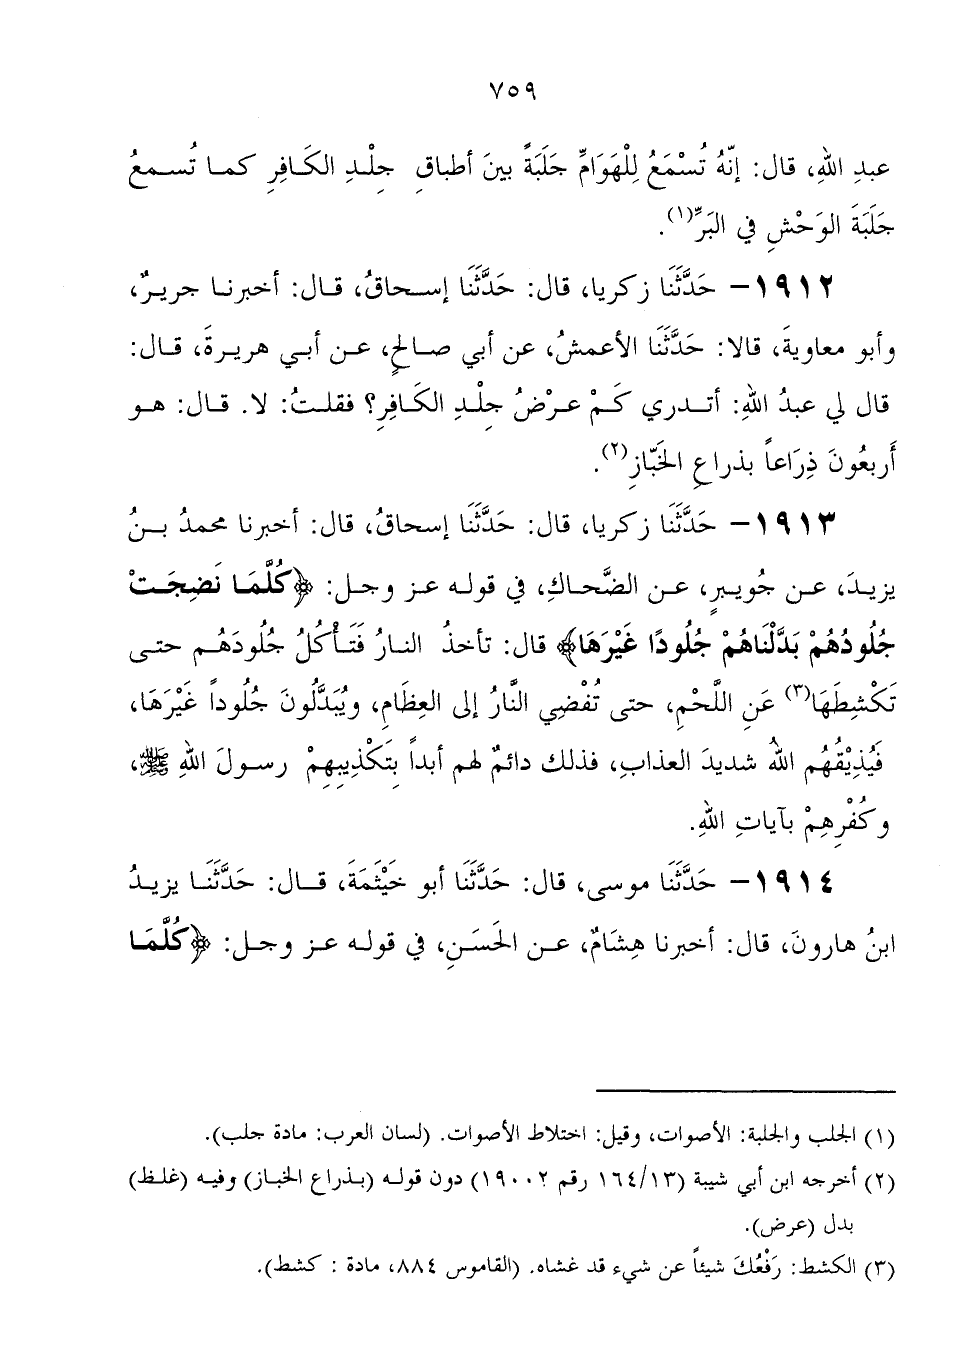 ٧٥٩
عبدِ اللهِ، قال: إنّهُ تُسْمَعُ لِلْهَوَامِّ جَلَبَةً بينَ أطباقِ جِلْدِ الكَافِرِ كما تُسمعُ
جَلَبَةَ الوَحْشِ في البَرِّ(١).
١٩١٢- حَدَّثَنَا زكريا، قال: حَدَّثَنَا إسحاقُ، قال: أخبرنا جريرٌ،
وأبو معاويةَ، قالا: حَدَّثَنَا الأعمشُ، عن أبي صالحٍ، عن أبي هريرةَ، قال:
قال لي عبدُ اللهِ: أتدري كَمْ عرْضُ جِلْدِ الكَافِرِ؟ فقلتُ: لا. قال: هو
أَربعُونَ ذِرَاعاً بذراعِ الخَبّازِ(٢).
١٩١٣- حَدَّثَنَا زكريا، قال: حَدَّثَنَا إسحاقُ، قال: أخبرنا محمدُ بنُ
يزيدَ، عن جُويبرٍ، عن الضَّحاكِ، في قوله عز وجل: ﴿كُلَّمَا نَضِجَتْ
جُلُودُهُمْ بَدَّلْنَاهُمْ جُلُودًا غَيْرَهَا﴾ قال: تأخذُ النارُ فَتَأْكُلُ جُلُودَهُم حتى
تَكْشِطَهَا(٣) عَنِ اللَّحْمِ، حتى تُفْضِي النَّارُ إلى العِظَامِ، ويُبَدَّلُونَ جُلُوداً غَيْرَهَا،
فَيُذِيْقُهُم اللهُ شديدَ العذابِ، فذلك دائمٌ لهم أبداً بِتَكْذِيبِهِمْ رسولَ اللهِ ﷺ،
وكُفْرِهِمْ بآياتِ اللهِ.
١٩١٤- حَدَّثَنَا موسى، قال: حَدَّثَنَا أبو خَيْثَمَةَ، قال: حَدَّثَنَا يزيدُ
ابنُ هارونَ، قال: أخبرنا هِشَامٌ، عن الحَسَنِ، في قوله عز وجل: ﴿كُلَّمَا
(١) الجلب والجلبة: الأصوات، وقيل: اختلاط الأصوات. (لسان العرب: مادة جلب).
(٢) أخرجه ابن أبي شيبة (١٦٤/١٣ رقم ١٩٠٠٢) دون قوله (بذراع الخباز) وفيه (غلظ)
بدل (عرض).
(٣) الكشط: رَفْعُكَ شيئاً عن شيء قد غشاه. (القاموس ٨٨٤، مادة : كشط).